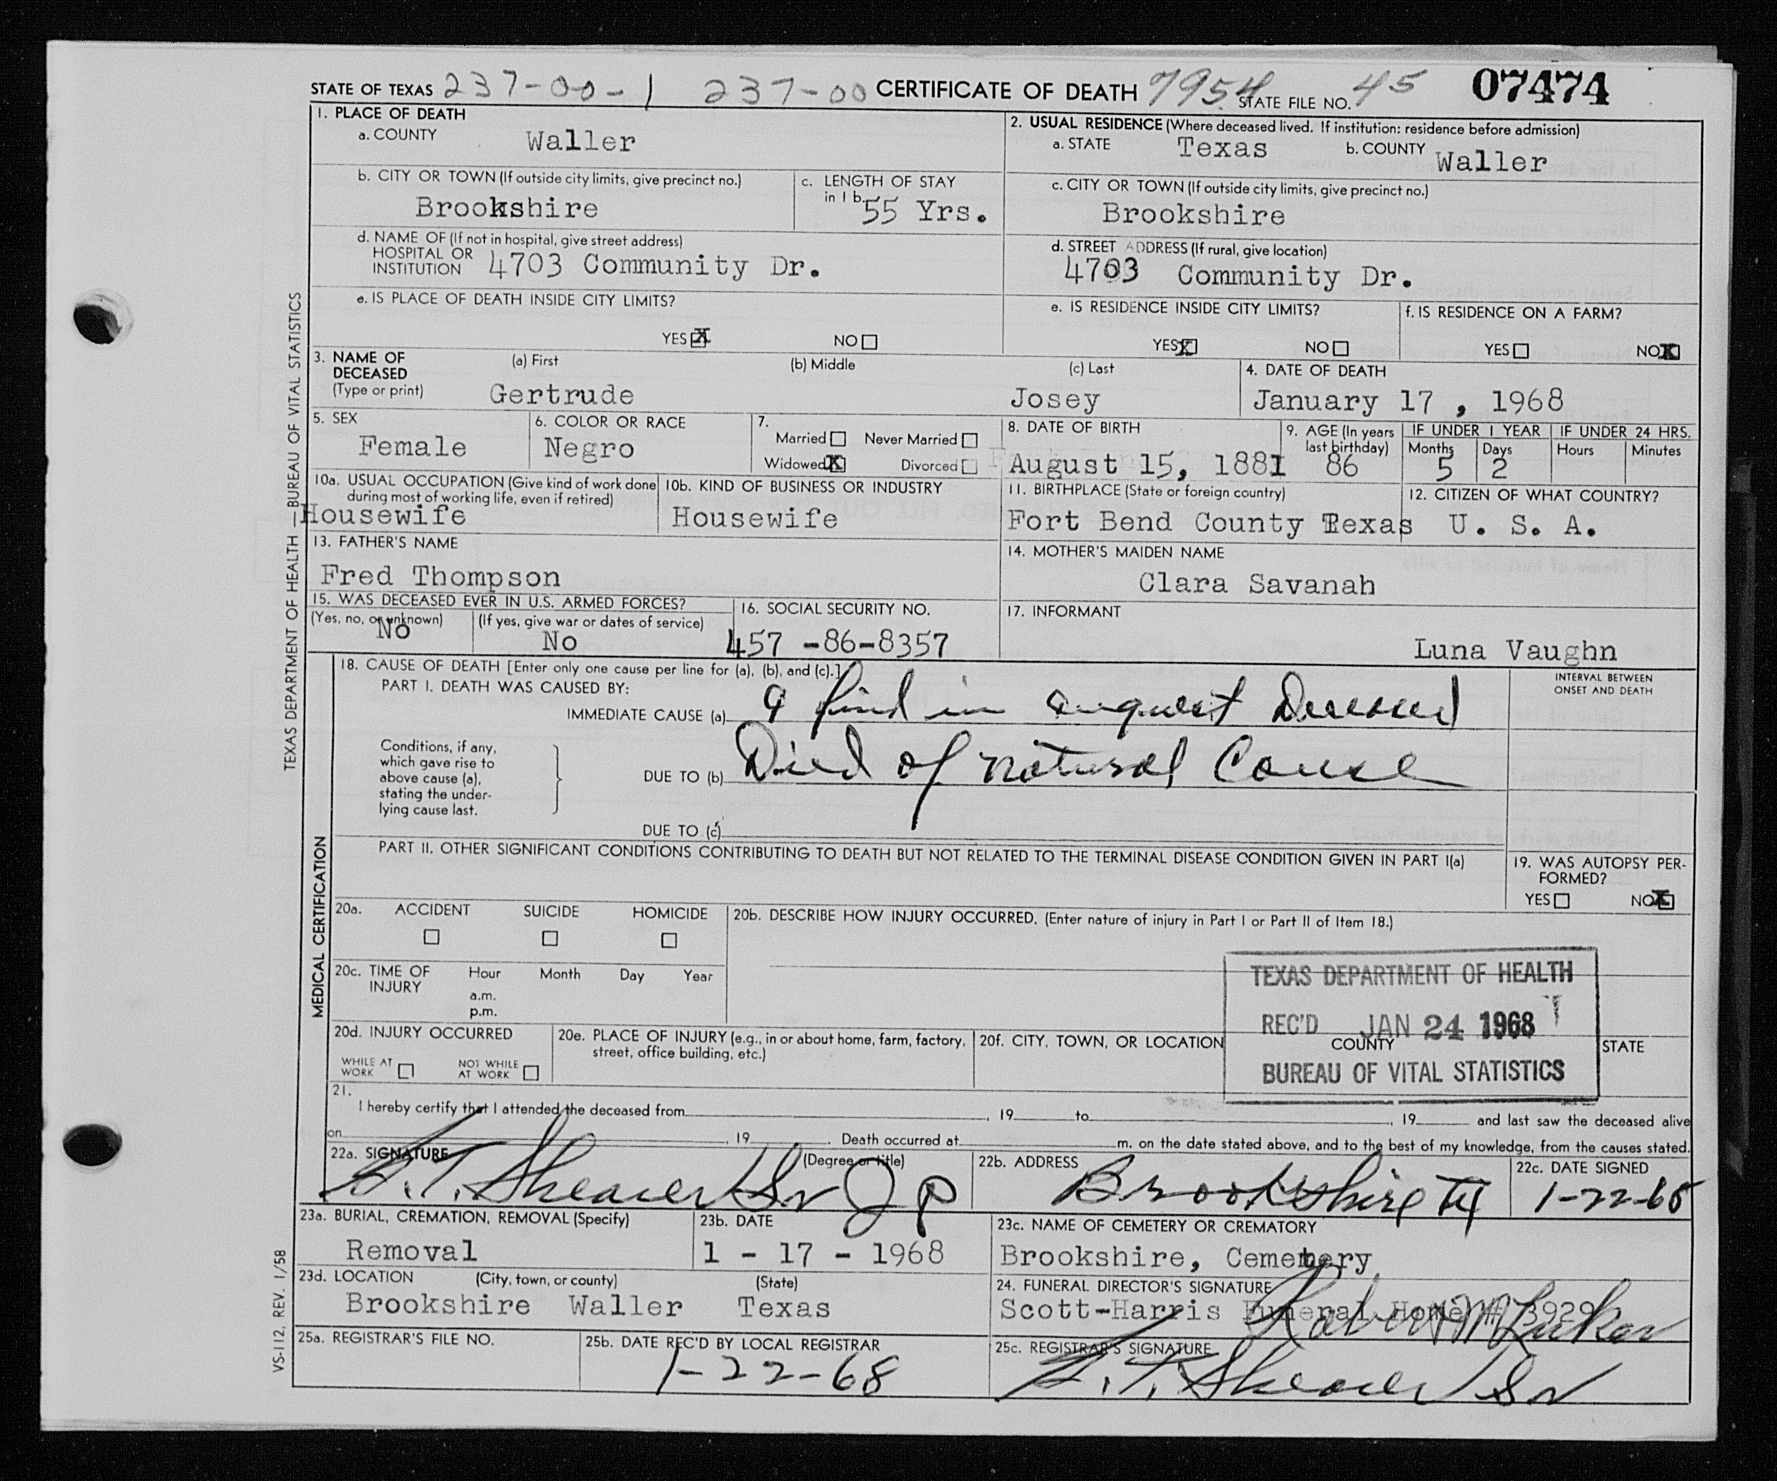 STATE OF TEXAS 237-00-1 237-00 CERTIFICATE OF DEATH 7954 STATE FILE NO. 45 07474
1. PLACE OF DEATH
a. COUNTY Waller
2. USUAL RESIDENCE (Where deceased lived. If institution: residence before admission)
a. STATE Texas b. COUNTY Waller
b. CITY OR TOWN (If outside city limits, give precinct no.)
Brookshire
c. LENGTH OF STAY
in 1 b. 55 Yrs.
c. CITY OR TOWN (If outside city limits, give precinct no.)
Brookshire
d. NAME OF (If not in hospital, give street address)
HOSPITAL OR
INSTITUTION 4703 Community Dr.
d. STREET ADDRESS (If rural, give location)
4703 Community Dr.
e. IS PLACE OF DEATH INSIDE CITY LIMITS?
YES X NO
e. IS RESIDENCE INSIDE CITY LIMITS?
YES X NO
f. IS RESIDENCE ON A FARM?
YES NO X
3. NAME OF
DECEASED
(Type or print)
(a) First (b) Middle (c) Last
Gertrude Josey
4. DATE OF DEATH
January 17 , 1968
5. SEX
Female
6. COLOR OR RACE
Negro
7.
Married Never Married
Widowed X Divorced
8. DATE OF BIRTH
August 15, 1881
9. AGE (In years
last birthday)
86
IF UNDER 1 YEAR
Months Days
5 2
IF UNDER 24 HRS.
Hours Minutes
10a. USUAL OCCUPATION (Give kind of work done
during most of working life, even if retired)
Housewife
10b. KIND OF BUSINESS OR INDUSTRY
Housewife
11. BIRTHPLACE (State or foreign country)
Fort Bend County Texas
12. CITIZEN OF WHAT COUNTRY?
U. S. A.
13. FATHER'S NAME
Fred Thompson
14. MOTHER'S MAIDEN NAME
Clara Savanah
15. WAS DECEASED EVER IN U.S. ARMED FORCES?
(Yes, no, or unknown) (If yes, give war or dates of service)
No No
16. SOCIAL SECURITY NO.
457 -86-8357
17. INFORMANT
Luna Vaughn
18. CAUSE OF DEATH [Enter only one cause per line for (a), (b), and (c).]
PART I. DEATH WAS CAUSED BY:
INTERVAL BETWEEN
ONSET AND DEATH
IMMEDIATE CAUSE (a) I find in enquest Deceased
Conditions, if any,
which gave rise to
above cause (a),
stating the under-
lying cause last.
DUE TO (b) Died of natural Cause
DUE TO (c)
PART II. OTHER SIGNIFICANT CONDITIONS CONTRIBUTING TO DEATH BUT NOT RELATED TO THE TERMINAL DISEASE CONDITION GIVEN IN PART I(a)
19. WAS AUTOPSY PER-
FORMED?
YES NO X
20a. ACCIDENT SUICIDE HOMICIDE
20b. DESCRIBE HOW INJURY OCCURRED. (Enter nature of injury in Part I or Part II of Item 18.)
20c. TIME OF
INJURY
Hour Month Day Year
a.m.
p.m.
TEXAS DEPARTMENT OF HEALTH
REC'D JAN 24 1968
BUREAU OF VITAL STATISTICS
20d. INJURY OCCURRED
WHILE AT
WORK
NOT WHILE
AT WORK
20e. PLACE OF INJURY (e.g., in or about home, farm, factory,
street, office building, etc.)
20f. CITY, TOWN, OR LOCATION COUNTY STATE
21.
I hereby certify that I attended the deceased from , 19 to , 19 and last saw the deceased alive
on , 19 . Death occurred at m. on the date stated above, and to the best of my knowledge, from the causes stated.
22a. SIGNATURE (Degree or title)
T. Shearer Sr J P
22b. ADDRESS
Brookshire Tx
22c. DATE SIGNED
1-22-68
23a. BURIAL, CREMATION, REMOVAL (Specify)
Removal
23b. DATE
1 - 17 - 1968
23c. NAME OF CEMETERY OR CREMATORY
Brookshire, Cemetery
23d. LOCATION (City, town, or county) (State)
Brookshire Waller Texas
24. FUNERAL DIRECTOR'S SIGNATURE
Scott-Harris Funeral Home # 3929
25a. REGISTRAR'S FILE NO.
25b. DATE REC'D BY LOCAL REGISTRAR
1-22-68
25c. REGISTRAR'S SIGNATURE
T. Shearer Sr
TEXAS DEPARTMENT OF HEALTH — BUREAU OF VITAL STATISTICS
MEDICAL CERTIFICATION
VS-112, REV. 1/58